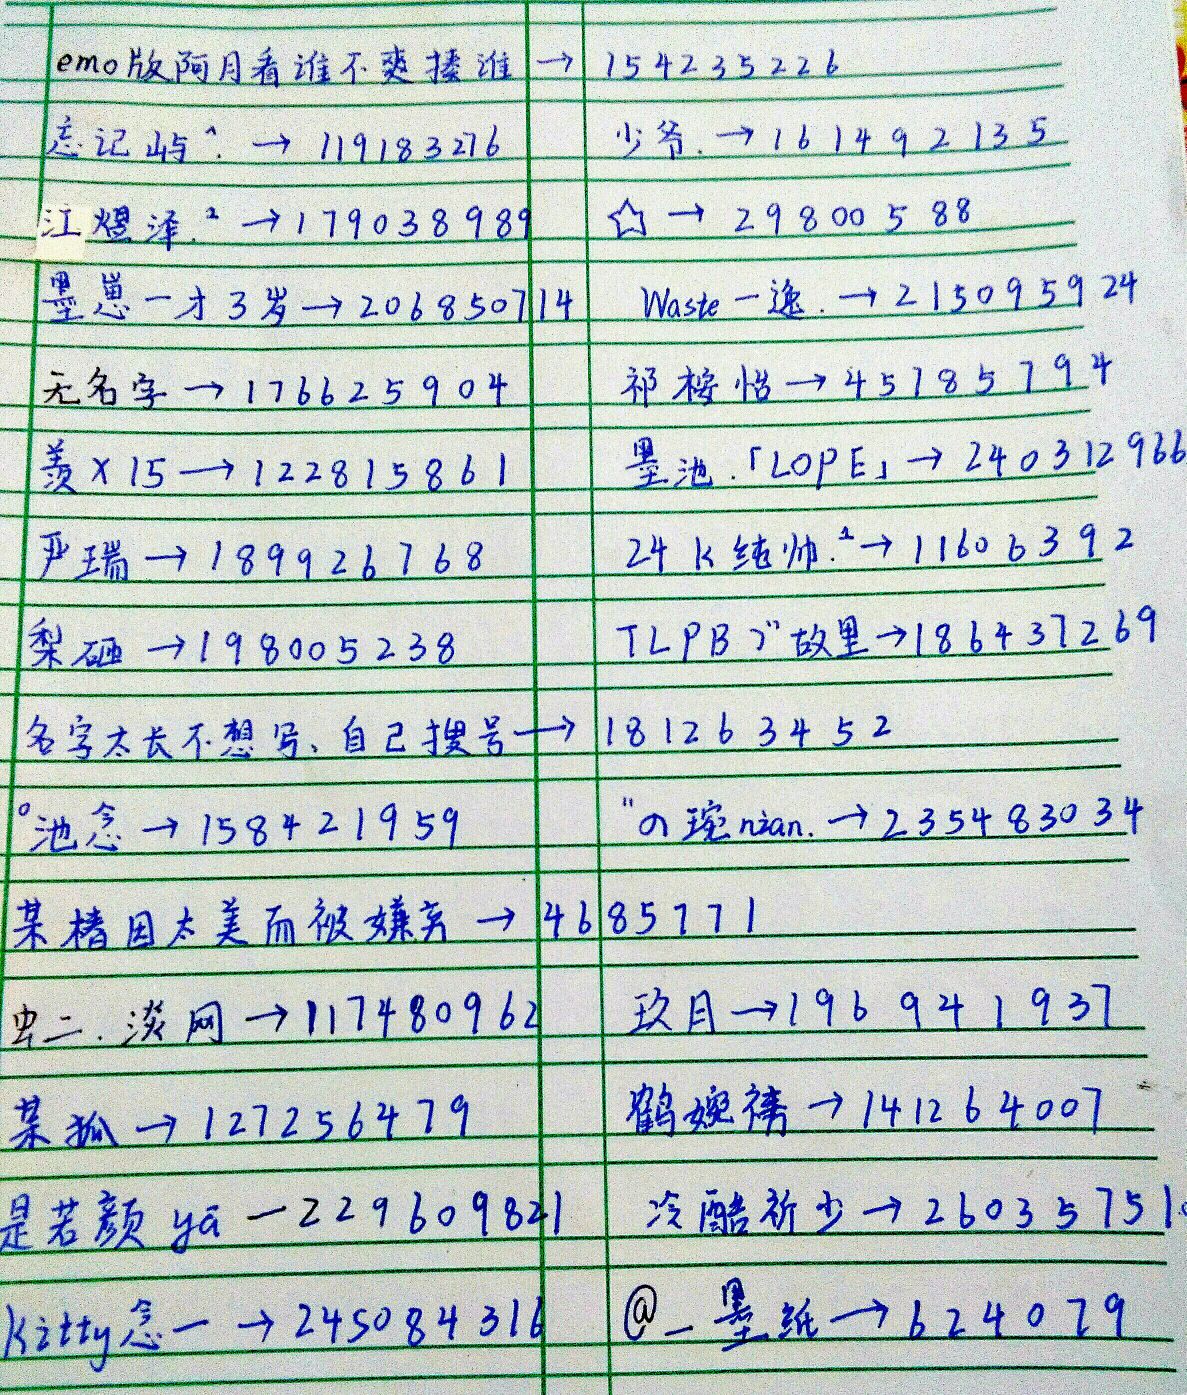 emo版阿月看谁不爽揍谁→154235226
忘记屿^.→119183276 少爷.→161492135
江煜泽.²→179038989 ☆→298005 88
墨崽一才3岁→206850714 Waste一逸.→215095924
无名字→176625904 祁桉恬→45785794
羡×15→122815861 墨池.「LOPE」→240312966
严瑞→189926768 24K纯帅.²→11606392
梨硒→198005238 TLPB づ故里→186437269
名字太长不想写、自己搜号→181263452
°池念→158421959 "の瑔nian.→235483034
某楮因太美而被嫌弃→4685771
虫二.淡网→117480962 玖月→196941937
某狐→127256479 鹤婉祷→141264007
是若颜ya一229609821 冷酷祈少→26035751
kitty念一→245084316 @_墨纸→624079